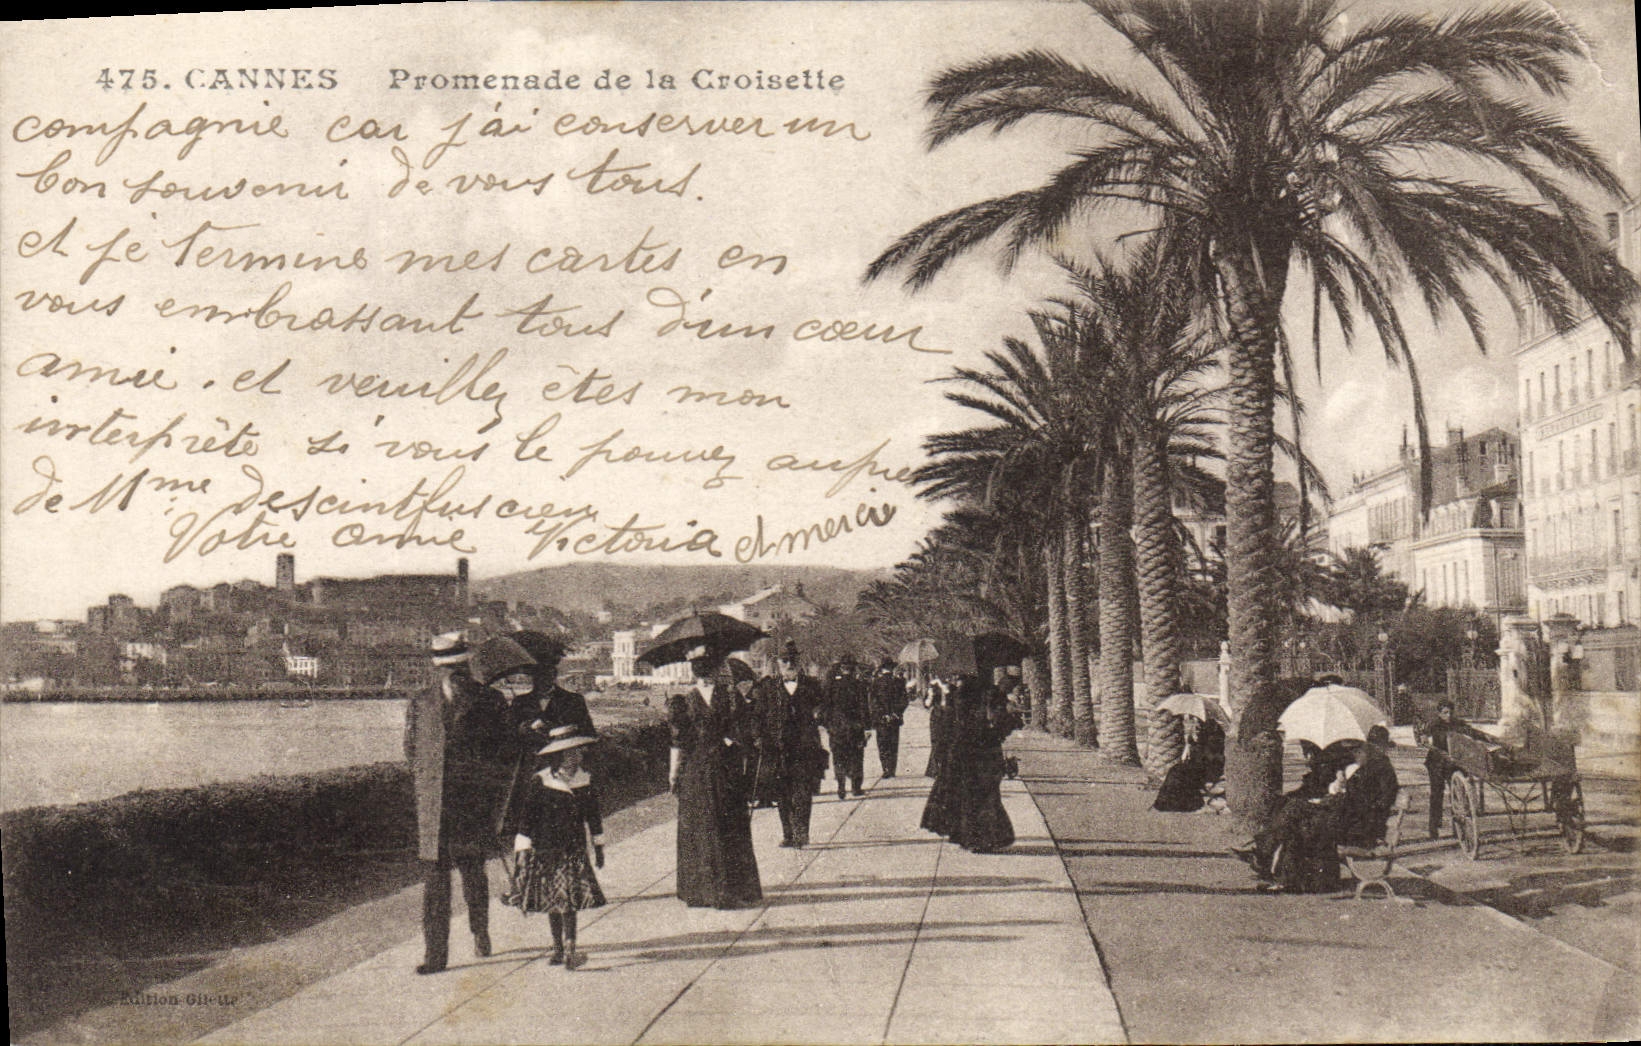 475. CANNES Promenade de la Croisette
compagnie car j'ai conserver un
bon souvenir de vous tous.
et je termine mes cartes en
vous embrassant tous d'un cœur
amie. et veuillez êtes mon
interprète si vous le pouvez aupre
de Mme
Votre amie Victoria et mercie
Edition Giletta